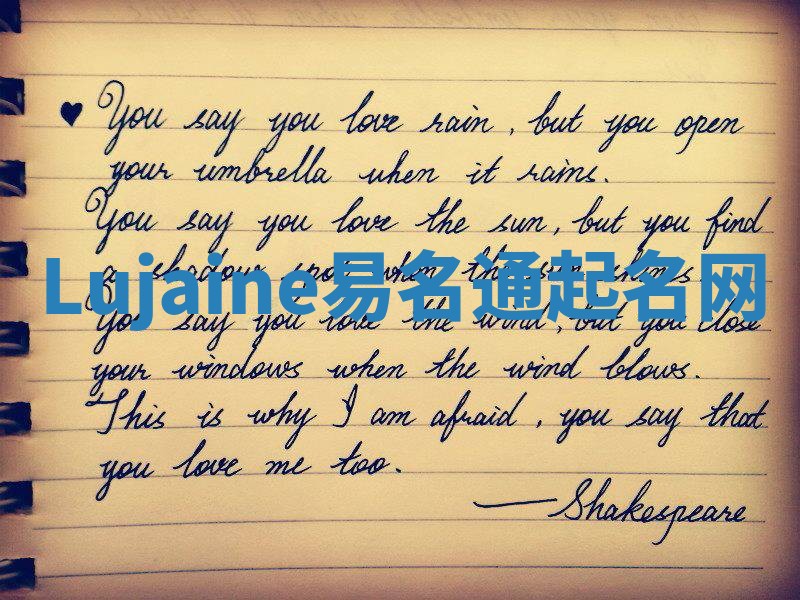 ♥ You say you love rain, but you open
your umbrella when it rains.
You say you love the sun, but you find
a shadow spot when the sun shines.
Lujaine易名通起名网
You say you love the wind, but you close
your windows when the wind blows.
This is why I am afraid, you say that
you love me too.
— Shakespeare